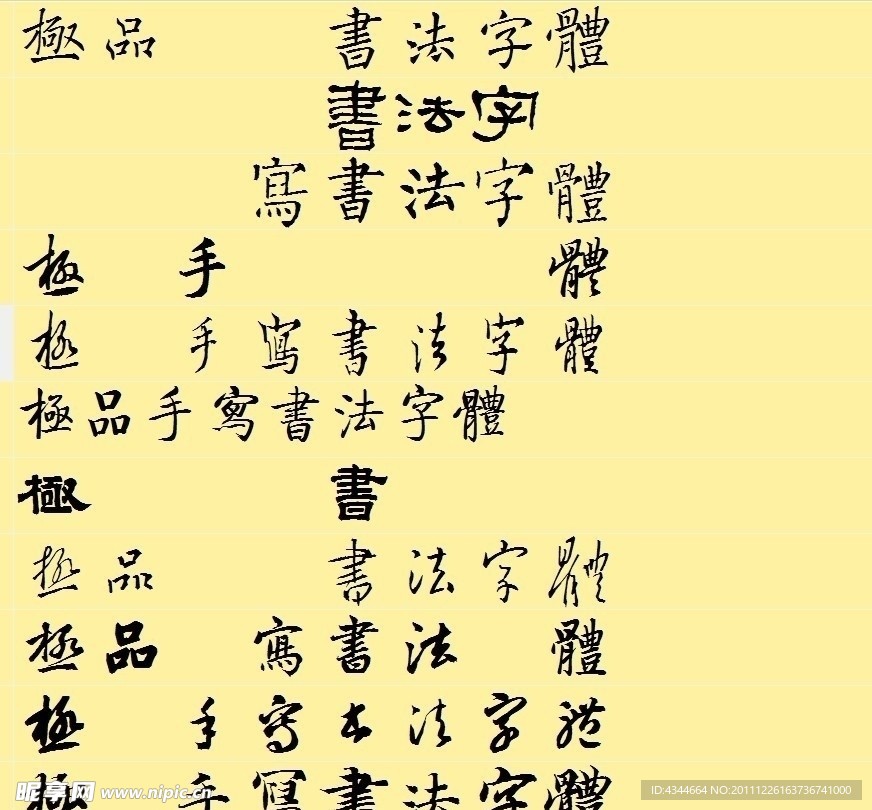 極品 書法字體
書法字
寫書法字體
極 手 體
極 手寫書法字體
極品手寫書法字體
極 書
極品 書法字體
極品 寫書法 體
極 手寫书法字體
極 手寫書法字體
昵享网 www.nipic.cn
ID:4344664 NO:20111226163736741000